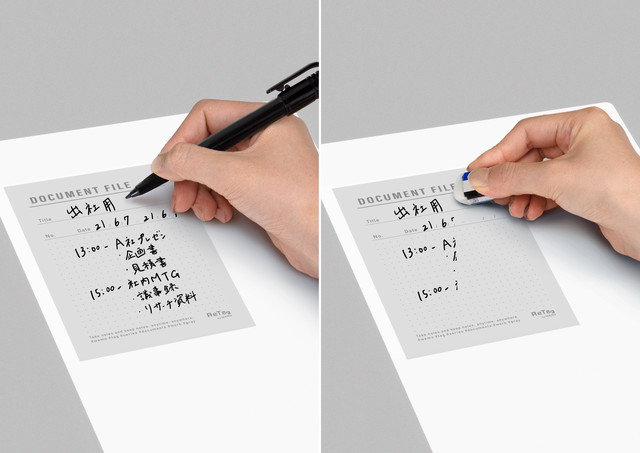 DOCUMENT FILE
Title 出社用
No. Date 21.6.7 21.6.
13:00- A社プレゼン
・企画書
・見積書
15:00- 社内MTG
・議事録
・リサーチ資料
Take notes and keep notes, anytime, anywhere.
ReTag
DOCUMENT FILE
Title 出社用
No. Date 21.6.
13:00- A
15:00-
Take notes and keep notes, anytime, anywhere.
ReTag